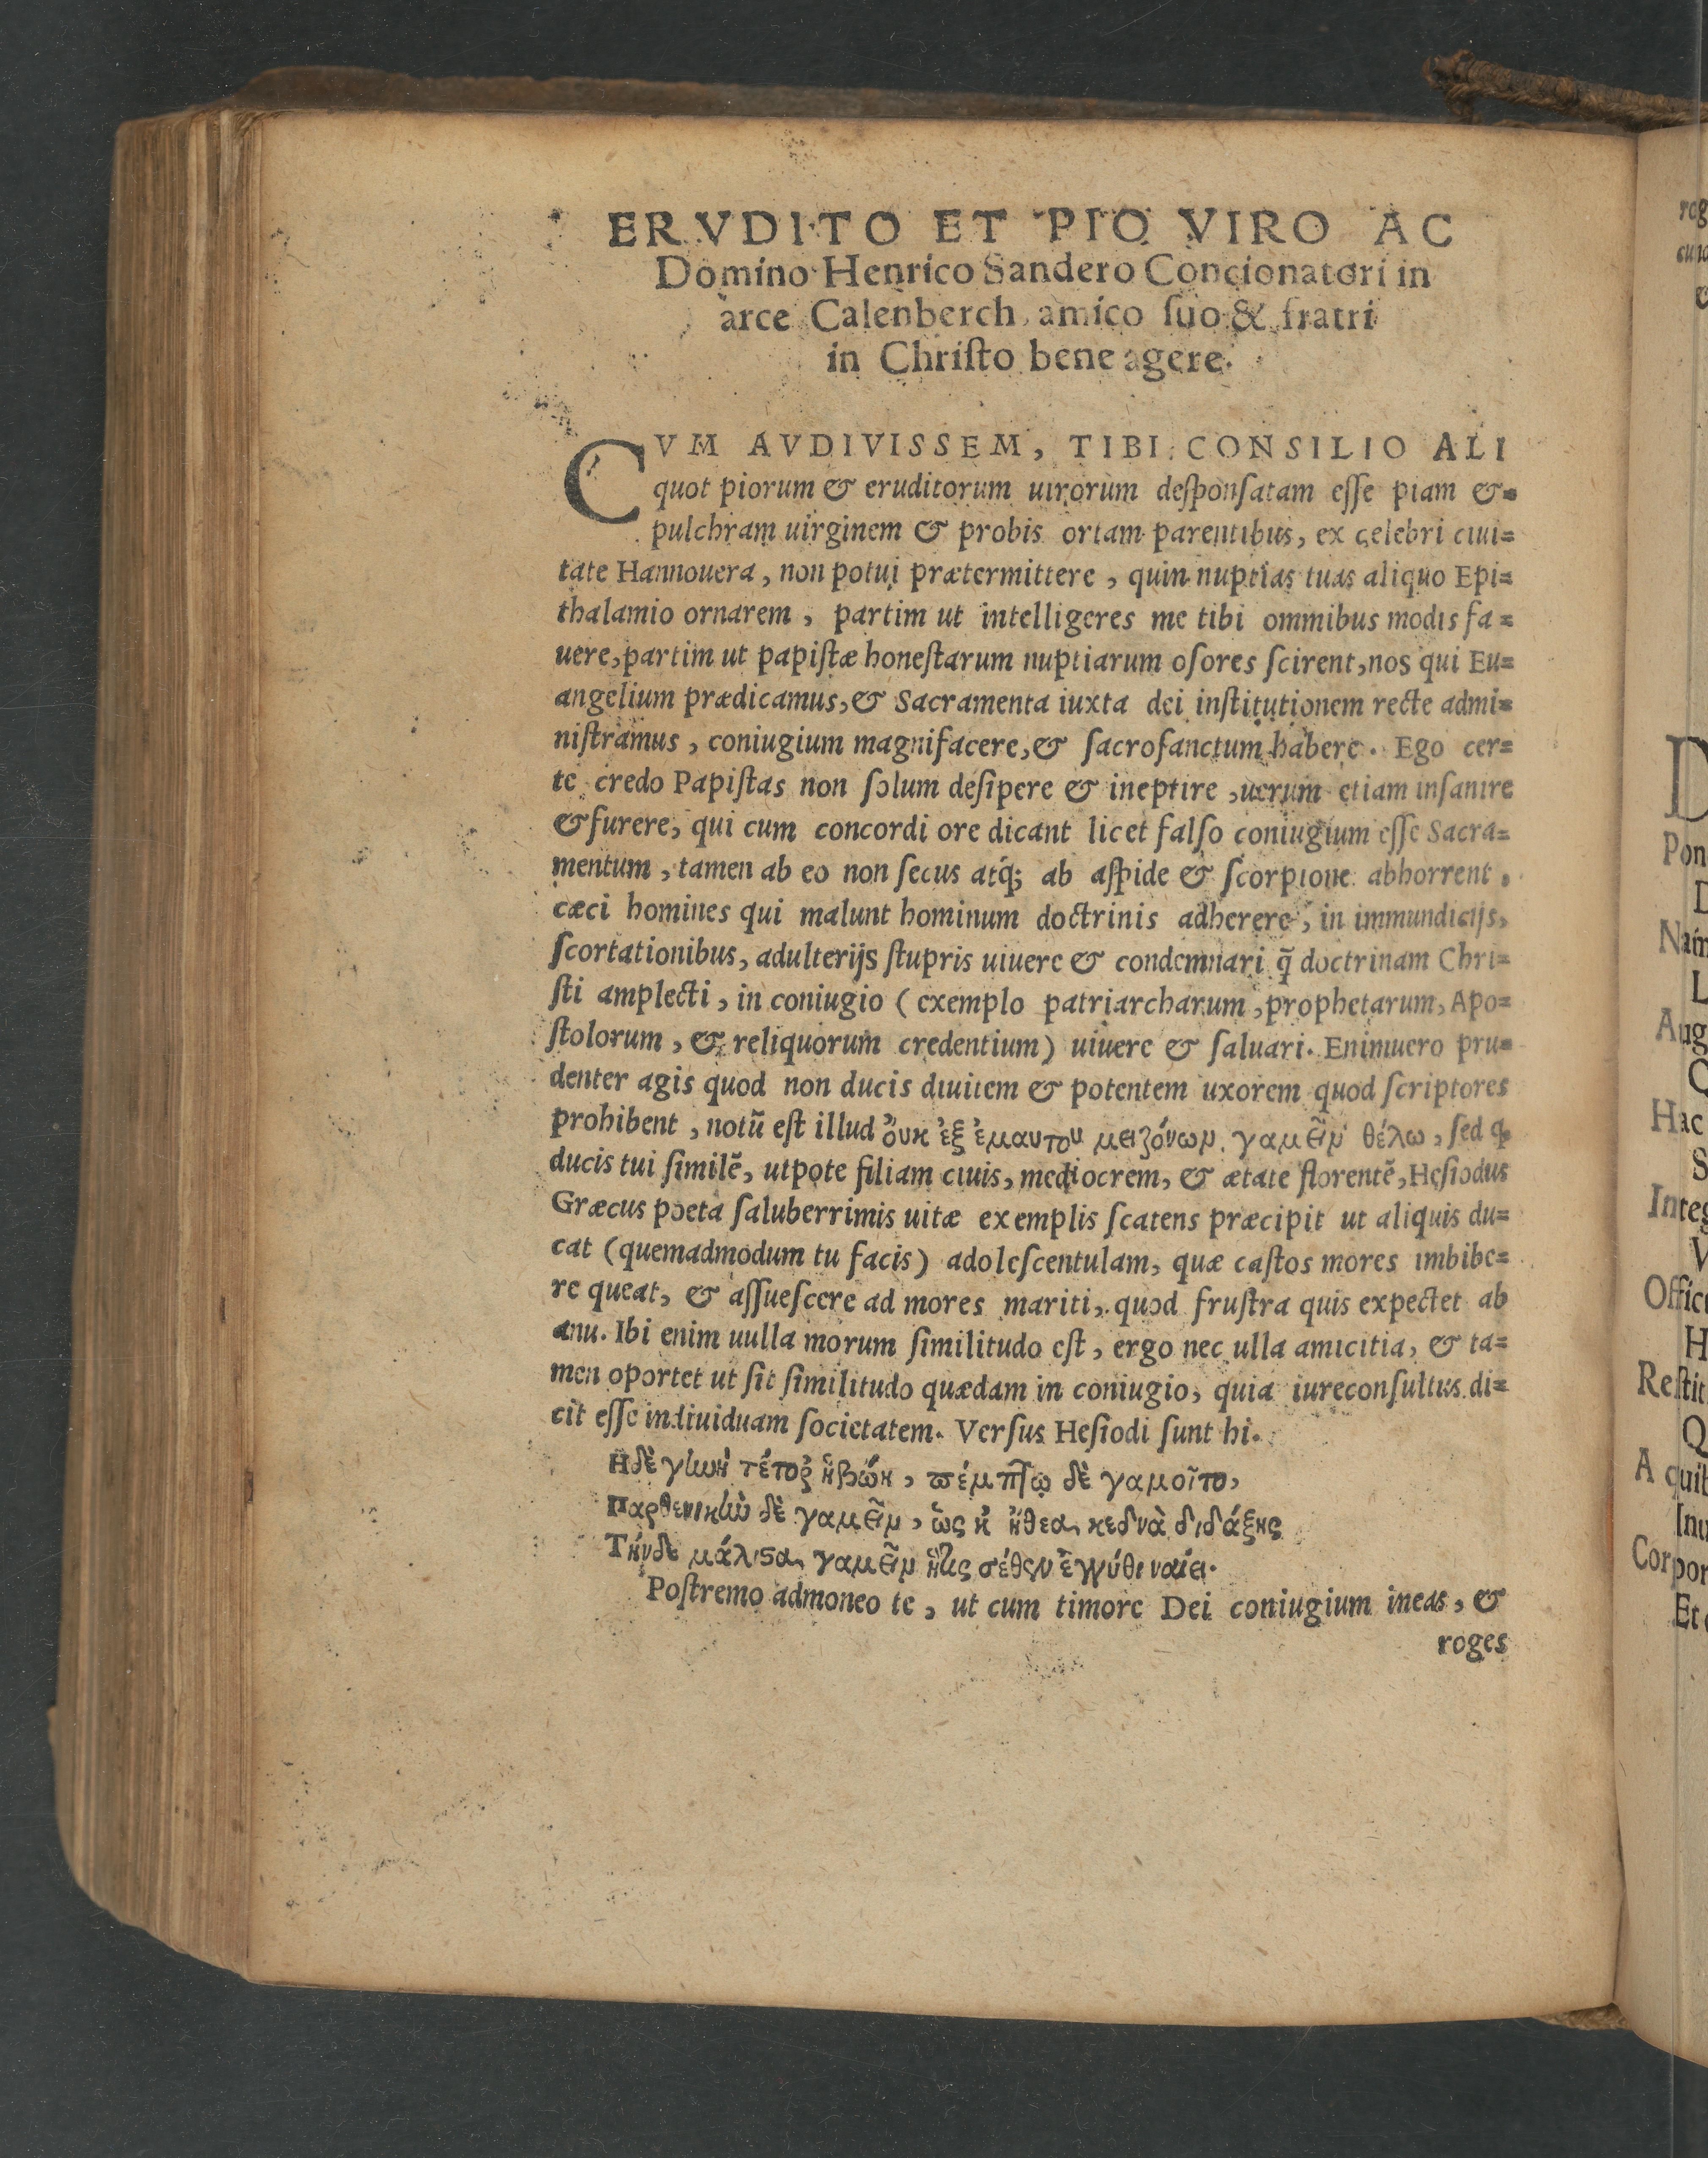 ERVDITO ET PIO VIRO AC
Domino Henrico Sandero Concionatori in
arce Calenberch amico ſuo & fratri
in Chriſto bene agere.
CVM AVDIVISSEM, TIBI CONSILIO ALI
quot piorum & eruditorum uirorum deſponſatam eſſe piam &
pulchram uirginem & probis ortam parentibus, ex celebri ciui=
tate Hannouera, non potui prætermittere, quin nuptias tuas aliquo Epi=
thalamio ornarem, partim ut intelligeres me tibi ommibus modis fa=
uere, partim ut papiſtæ honeſtarum nuptiarum oſores ſcirent, nos qui Eu=
angelium prædicamus, & Sacramenta iuxta dei inſtitutionem recte admi=
niſtramus, coniugium magnifacere, & ſacroſanctum habere. Ego cer=
te credo Papiſtas non ſolum deſipere & ineptire, uerum etiam inſanire
& furere, qui cum concordi ore dicant licet falſo coniugium eſſe Sacra=
mentum, tamen ab eo non ſecus atq́; ab aſpide & ſcorpione abhorrent,
cæci homines qui malunt hominum doctrinis adherere, in immundicijs,
ſcortationibus, adulterijs ſtupris uiuere & condemnari q̃ doctrinam Chri=
ſti amplecti, in coniugio (exemplo patriarcharum, prophetarum, Apo=
ſtolorum, & reliquorum credentium) uiuere & ſaluari. Enimuero pru=
denter agis quod non ducis diuitem & potentem uxorem quod ſcriptores
prohibent, notũ eſt illud ὄυκ ἐξ ἐμαυτου μειζόνων γαμεῖν θέλω, ſed q
ducis tui ſimilẽ, utpote filiam ciuis, mediocrem, & ætate florentẽ, Heſiodus
Græcus poeta ſaluberrimis uitæ exemplis ſcatens præcipit ut aliquis du=
cat (quemadmodum tu facis) adoleſcentulam, quæ caſtos mores imbibe=
re queat, & aſſueſcere ad mores mariti, quod fruſtra quis expectet ab
anu. Ibi enim uulla morum ſimilitudo eſt, ergo nec ulla amicitia, & ta=
men oportet ut ſit ſimilitudo quædam in coniugio, quia iureconſultus di=
cit eſſe indiuiduam ſocietatem. Verſus Heſiodi ſunt hi.
Ηδὲ γυνὴ τέτορ ἡβώη, πέμπτῳ δὲ γαμοῖτο,
Παρθενικὴν δὲ γαμεῖν, ὥς κ ἤθεα κεδνὰ διδάξης
Τήνδε μάλιστα γαμεῖν ἥτις σέθεν ἐγγύθι ναίει.
Poſtremo admoneo te, ut cum timore Dei coniugium ineas, &
roges